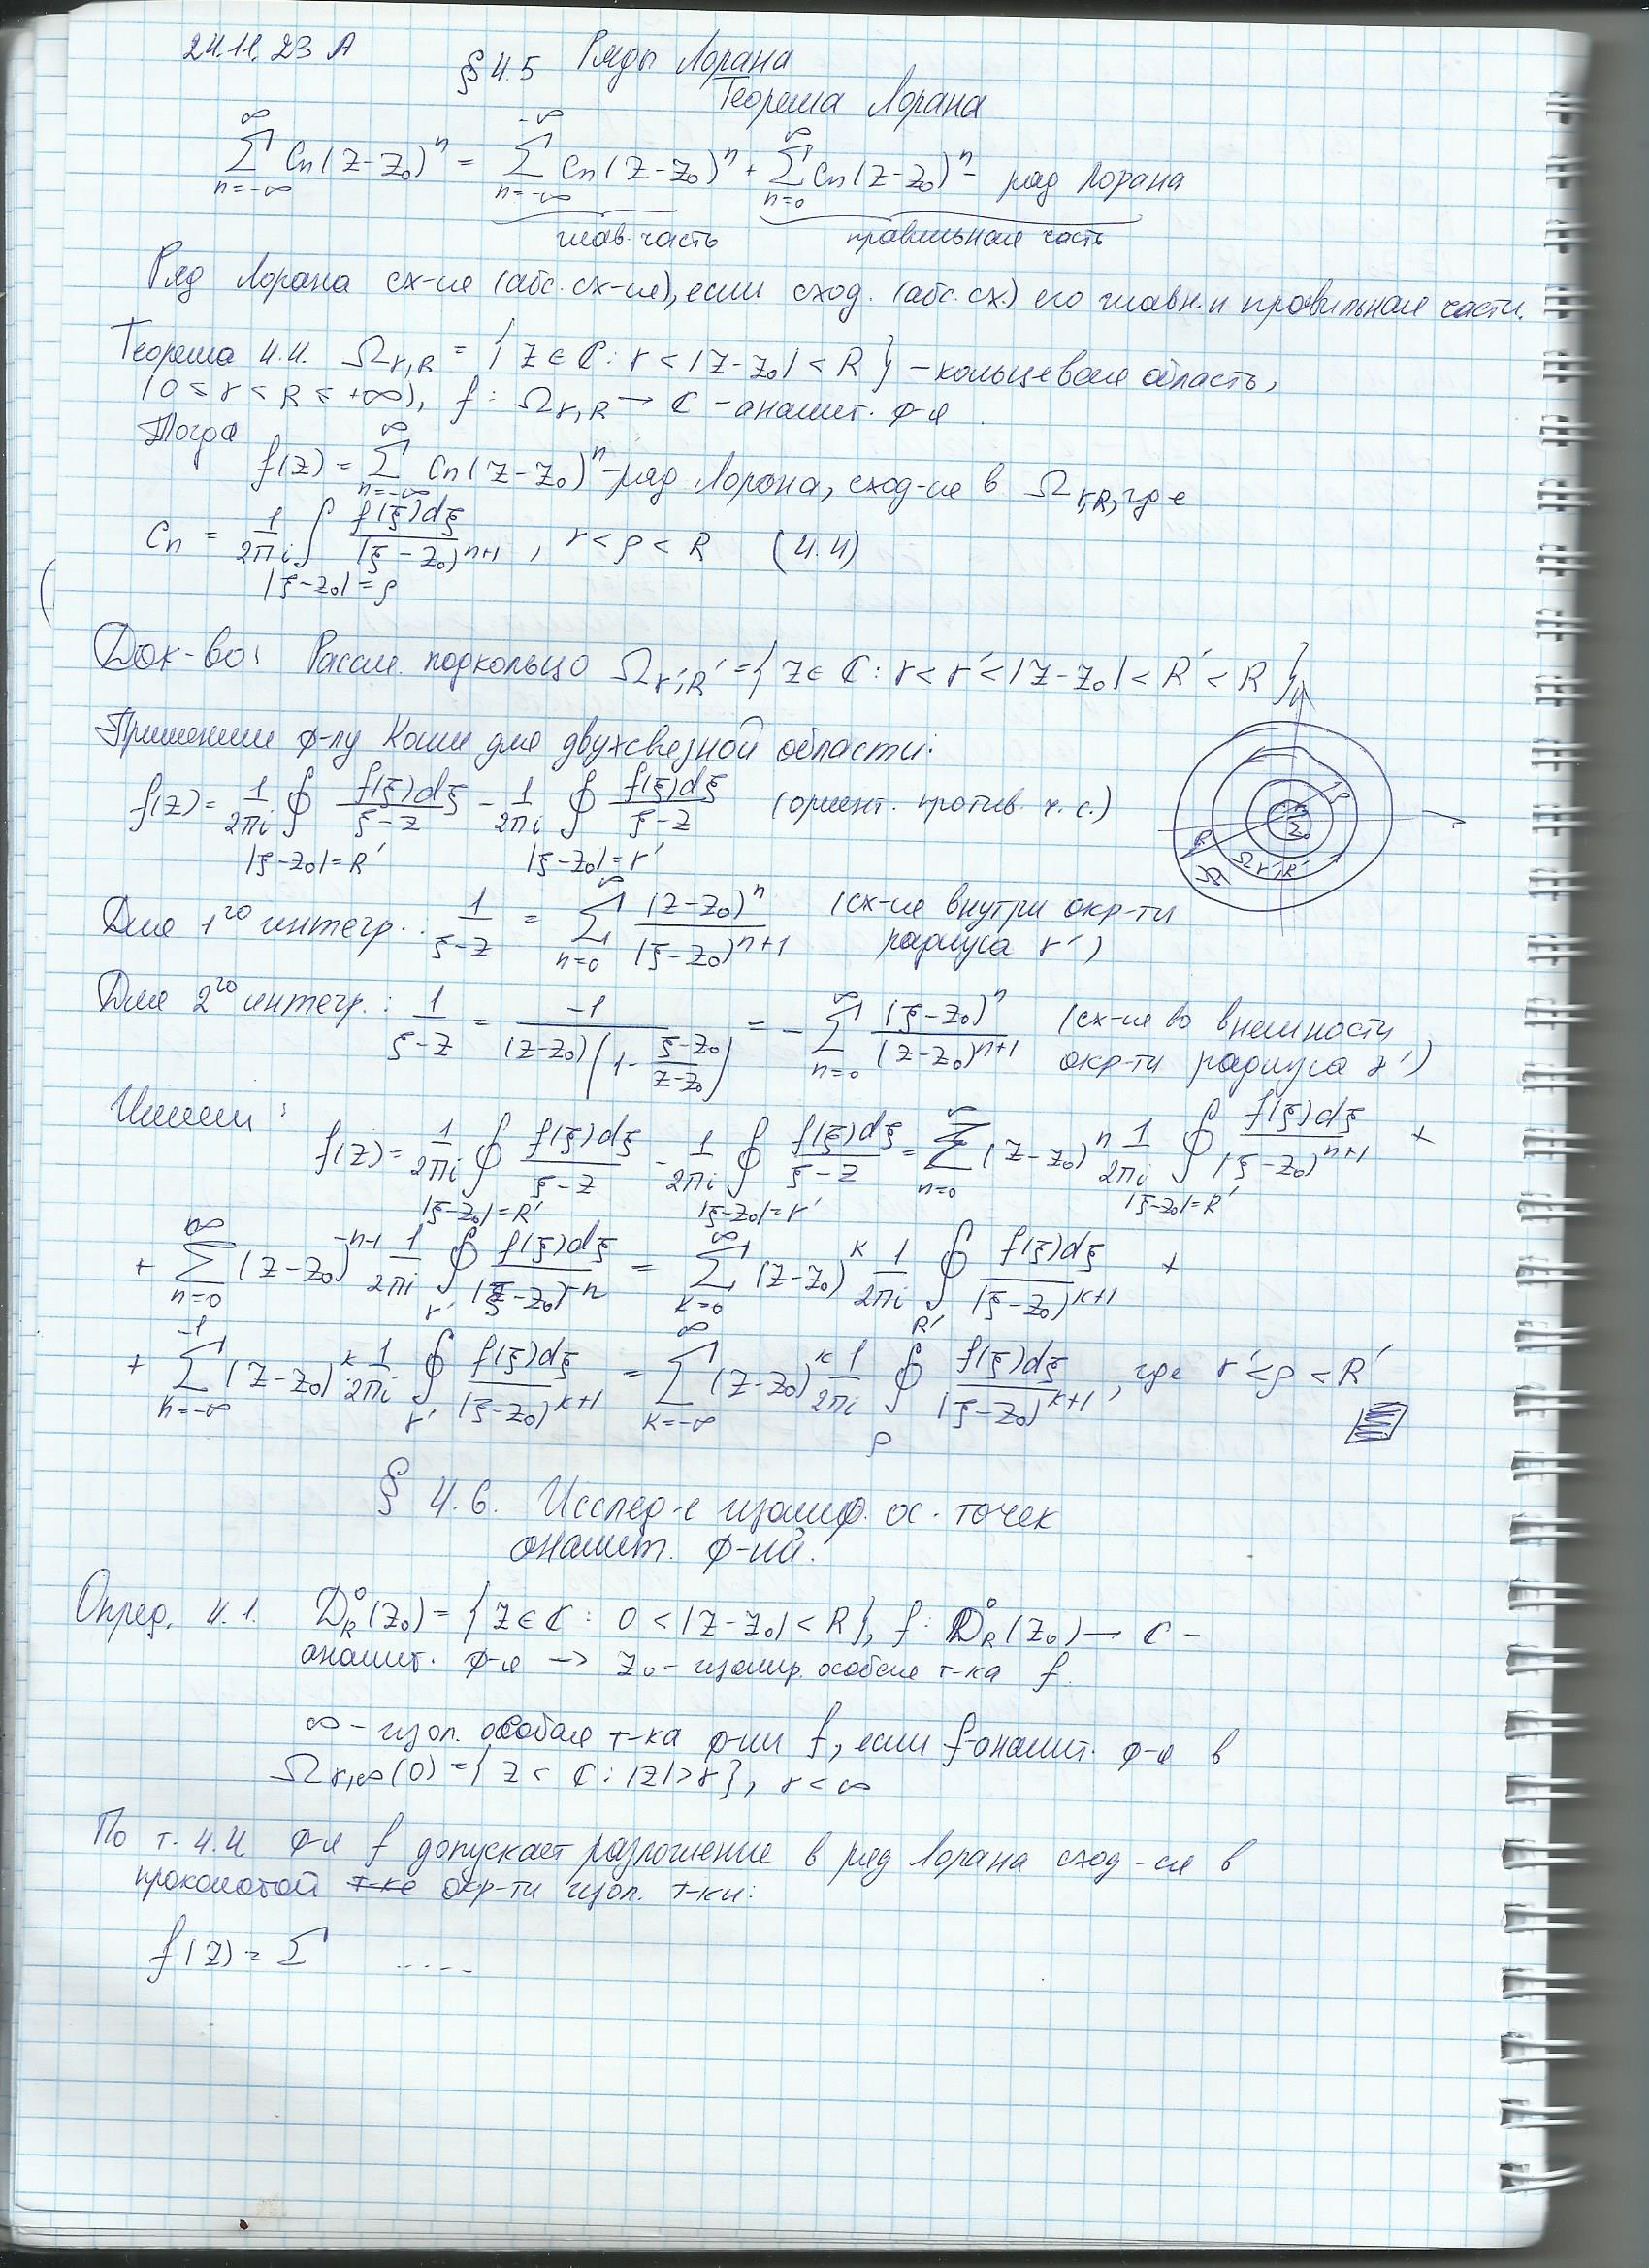 24.11.23 А
§ 4.5 Ряды Лорана
Теорема Лорана
∞ -∞ ∞
∑ Cn(z-z₀)ⁿ = ∑ Cn(z-z₀)ⁿ + ∑ Cn(z-z₀)ⁿ - ряд Лорана
n=-∞ n=-∞ n=0
глав. часть правильная часть
Ряд Лорана сх-ся (абс. сх-ся), если сход. (абс. сх.) его главн. и правильная части.
Теорема 4.4. Ω r,R = { z ∈ ℂ : r < |z-z₀| < R } - кольцевая область,
(0 ≤ r < R ≤ +∞), f : Ω r,R → ℂ - аналит. ф-я.
Тогда
∞
f(z) = ∑ Cn(z-z₀)ⁿ - ряд Лорана, сход-ся в Ω r,R, где
n=-∞
Cn = 1/2πi ∫ f(ξ)dξ/(ξ-z₀)ⁿ⁺¹ , r < ρ < R (4.4)
|ξ-z₀| = ρ
Док-во: Рассм. подкольцо Ω r',R' = { z ∈ ℂ : r < r' < |z-z₀| < R' < R }
Применим ф-лу Коши для двухсвязной области:
f(z) = 1/2πi ∮ f(ξ)dξ/ξ-z - 1/2πi ∮ f(ξ)dξ/ξ-z (ориент. против. ч. с.)
|ξ-z₀| = R' |ξ-z₀| = r'
ρ
z₀
R
Ω r',R'
∞
Для 1го интегр.: 1/ξ-z = ∑ (z-z₀)ⁿ/(ξ-z₀)ⁿ⁺¹ (сх-ся внутри окр-ти
n=0 радиуса r')
∞
Для 2го интегр.: 1/ξ-z = -1/(z-z₀)(1 - ξ-z₀/z-z₀) = - ∑ (ξ-z₀)ⁿ/(z-z₀)ⁿ⁺¹ (сх-ся во внешности
n=0 окр-ти радиуса r')
Имеем:
∞
f(z) = 1/2πi ∮ f(ξ)dξ/ξ-z - 1/2πi ∮ f(ξ)dξ/ξ-z = ∑ (z-z₀)ⁿ 1/2πi ∮ f(ξ)dξ/(ξ-z₀)ⁿ⁺¹ +
|ξ-z₀| = R' |ξ-z₀| = r' n=0 |ξ-z₀| = R'
∞ ∞
+ ∑ (z-z₀)⁻ⁿ⁻¹ 1/2πi ∮ f(ξ)dξ/(ξ-z₀)⁻ⁿ = ∑ (z-z₀)ᵏ 1/2πi ∮ f(ξ)dξ/(ξ-z₀)ᵏ⁺¹ +
n=0 r' k=0 R'
-1 ∞
+ ∑ (z-z₀)ᵏ 1/2πi ∮ f(ξ)dξ/(ξ-z₀)ᵏ⁺¹ = ∑ (z-z₀)ᵏ 1/2πi ∮ f(ξ)dξ/(ξ-z₀)ᵏ⁺¹ , где r' < ρ < R'
k=-∞ r' k=-∞ ρ
§ 4.6. Исслед-е изолир. ос. точек
аналит. ф-ий.
Опред. 4.1. D⁰R(z₀) = { z ∈ ℂ : 0 < |z-z₀| < R }, f : D⁰R(z₀) → ℂ -
аналит. ф-я → z₀ - изолир. особая т-ка f.
∞ - изол. особая т-ка ф-ии f, если f-аналит. ф-я в
Ω r,∞(0) = { z ∈ ℂ : |z| > r }, r < ∞
По т. 4.4 ф-я f допускает разложение в ряд Лорана сход-ся в
проколотой т-ке окр-ти изол. т-ки:
f(z) = ∑ .....